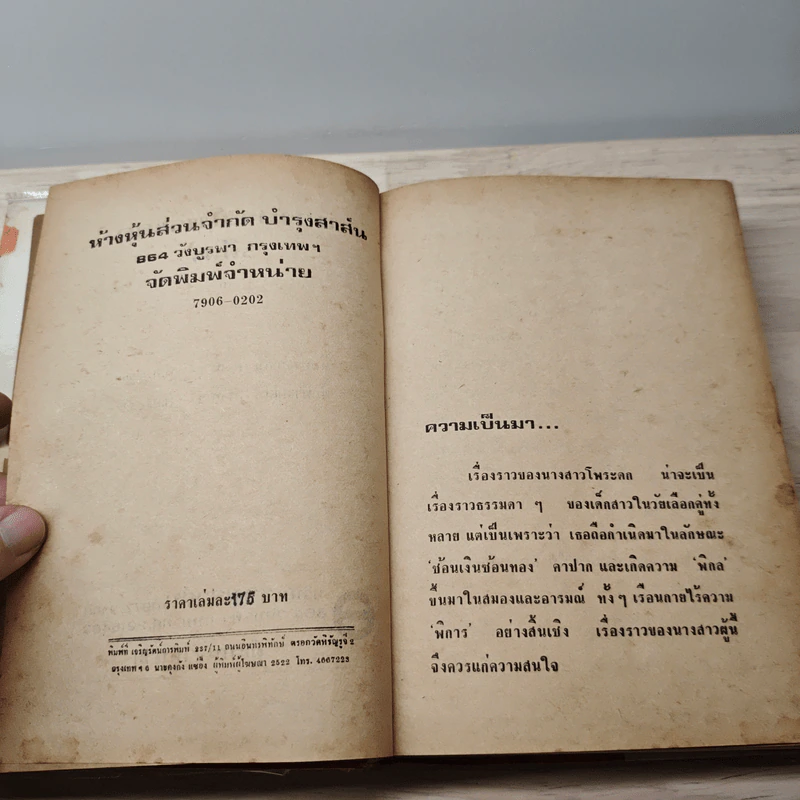 ห้างหุ้นส่วนจำกัด บำรุงสาส์น
864 วังบูรพา กรุงเทพฯ
จัดพิมพ์จำหน่าย
7906-0202
ราคาเล่มละ 175 บาท
พิมพ์ที่ เจริญรัตน์การพิมพ์ 237/11 ถนนอินทรพิทักษ์ ตรอกวัดหิรัญรูจี 2
กรุงเทพฯ 6 นายกุงกัง แซ่อึ้ง ผู้พิมพ์ผู้โฆษณา 2522 โทร. 4667223
ความเป็นมา...
เรื่องราวของนางสาวโพระดก น่าจะเป็น
เรื่องราวธรรมดา ๆ ของเด็กสาวในวัยเลือกคู่ทั้ง
หลาย แต่เป็นเพราะว่า เธอถือกำเนิดมาในลักษณะ
‘ช้อนเงินช้อนทอง’ คาปาก และเกิดความ ‘พิกล’
ขึ้นมาในสมองและอารมณ์ ทั้ง ๆ เรือนกายไร้ความ
‘พิการ’ อย่างสิ้นเชิง เรื่องราวของนางสาวผู้นี้
จึงควรแก่ความสนใจ